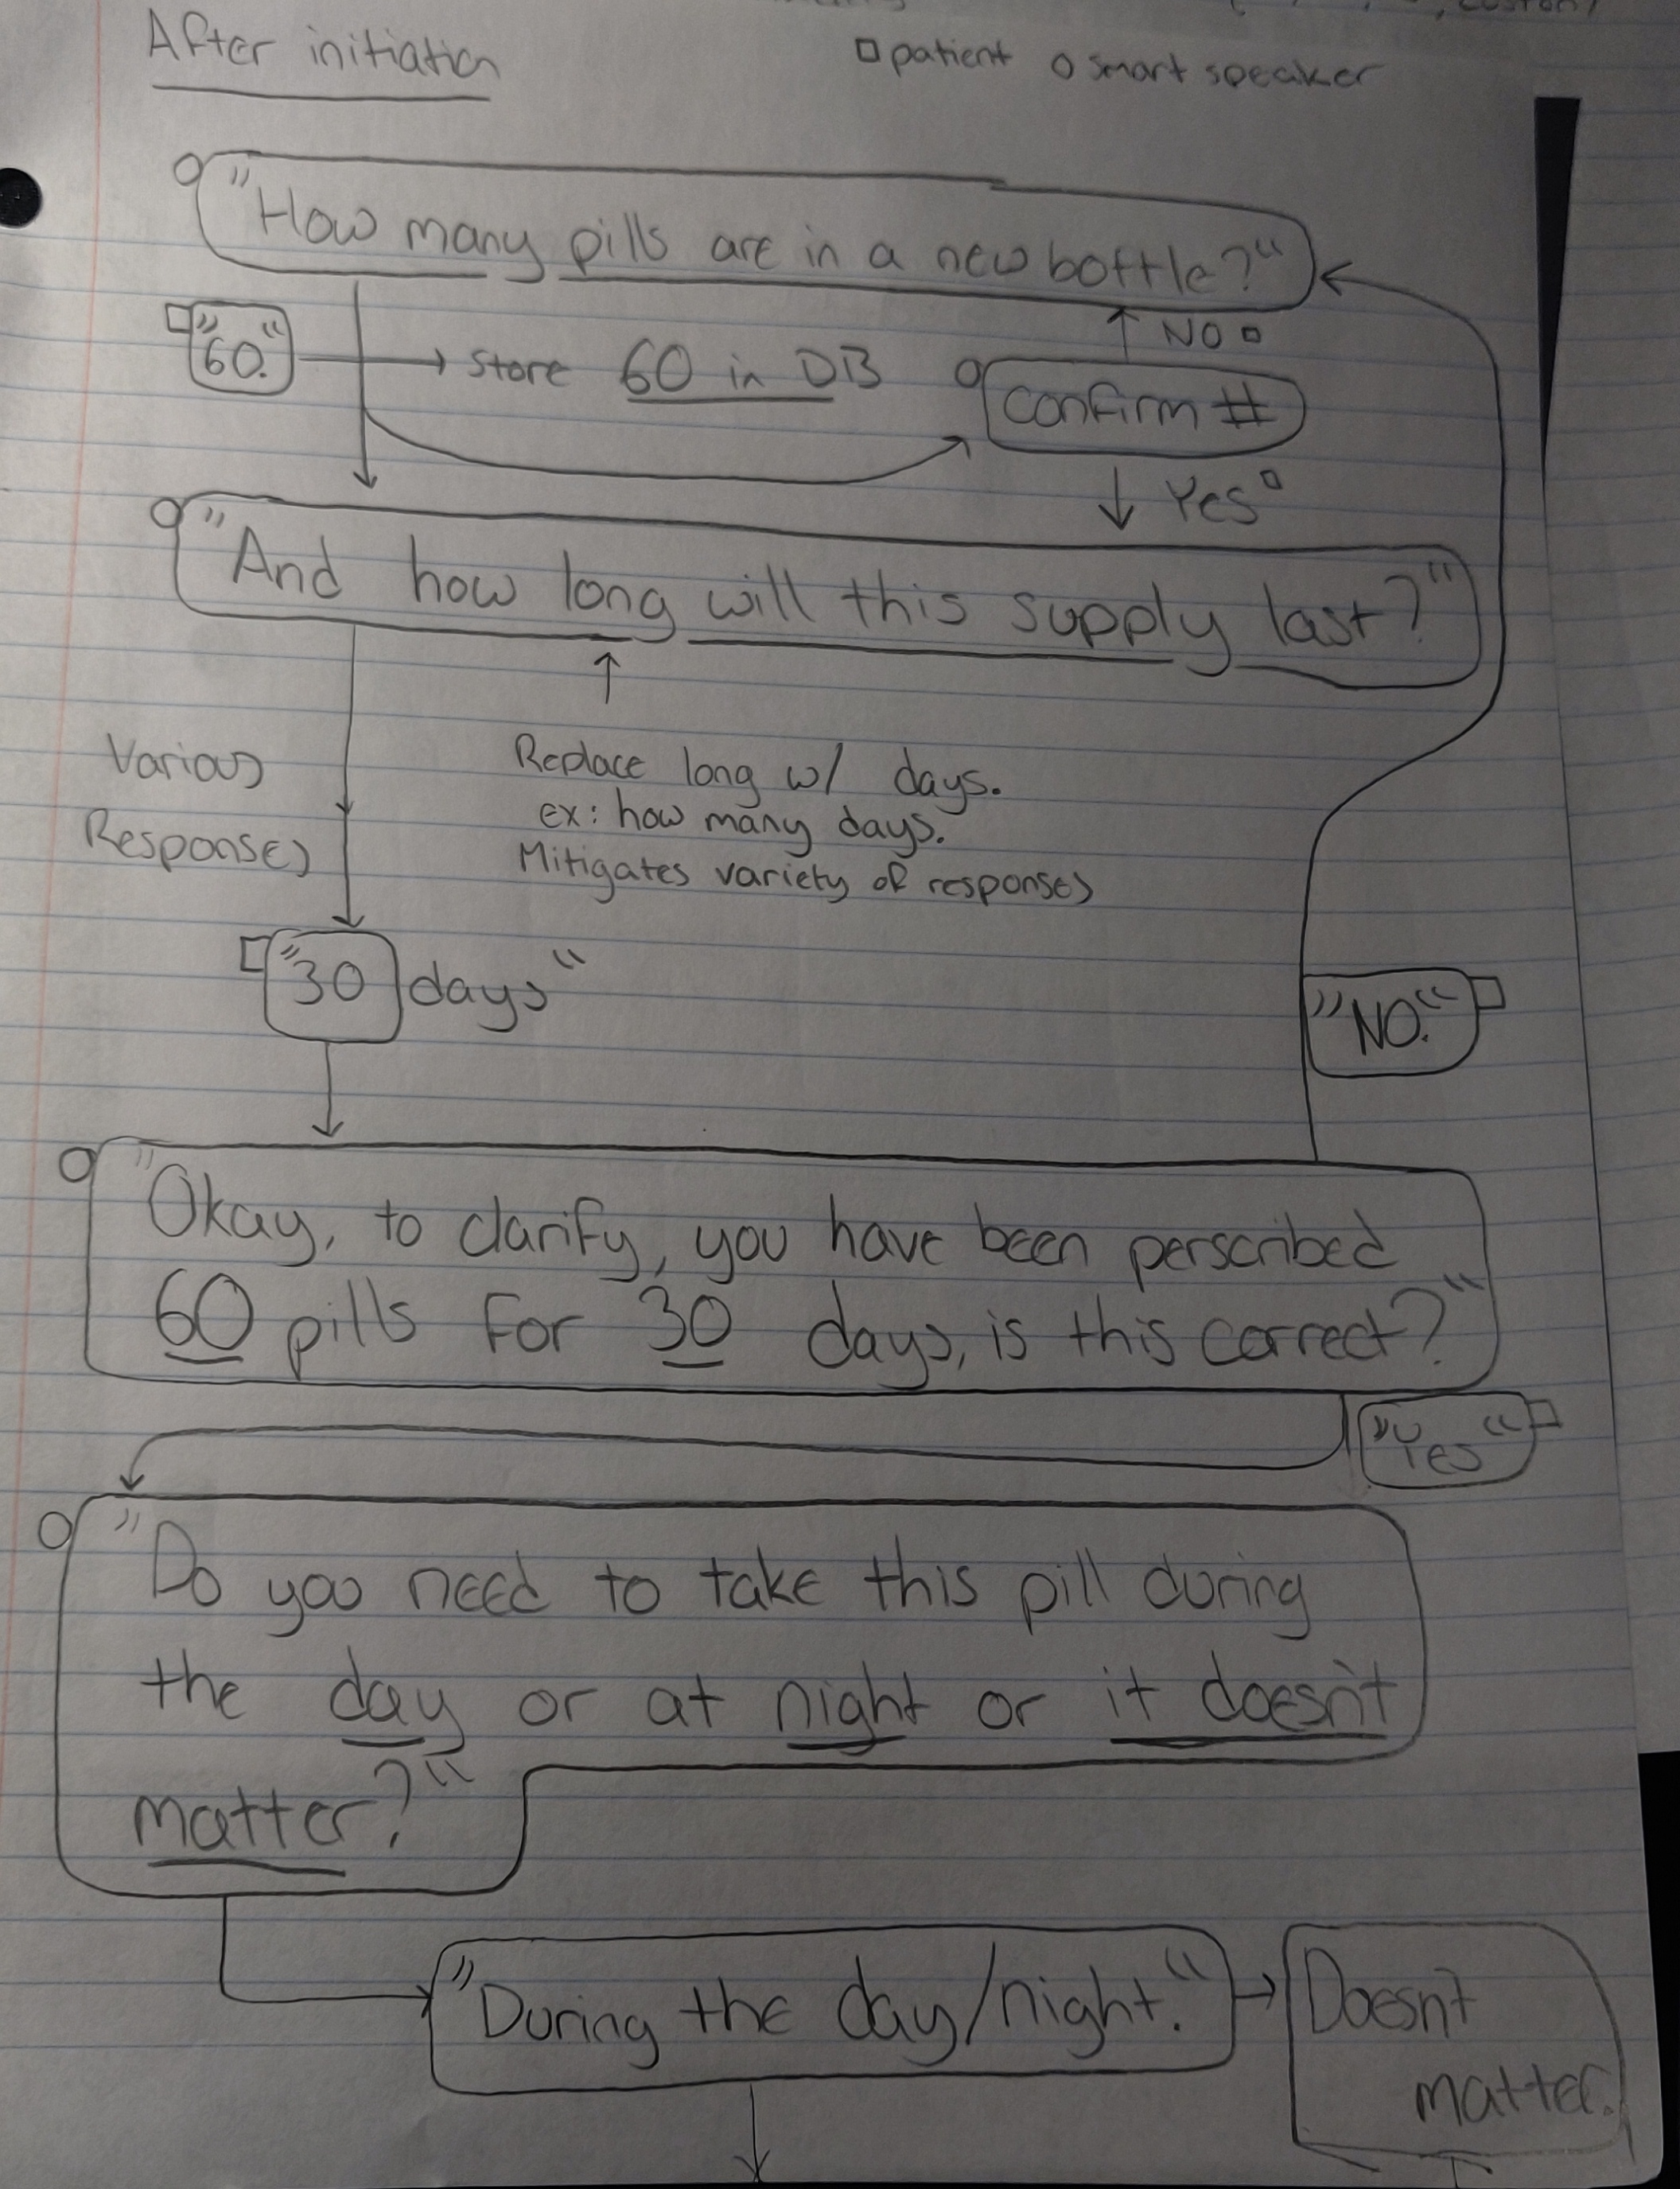 After initiation
□ patient ○ smart speaker
"How many pills are in a new bottle?"
NO
"60."
Store 60 in DB
Confirm #
Yes
"And how long will this supply last?"
Various
Responses
Replace long w/ days.
ex: how many days.
Mitigates variety of responses
"30 days"
"NO."
"Okay, to clarify, you have been perscribed
60 pills for 30 days, is this correct?"
"Yes"
"Do you need to take this pill during
the day or at night or it doesn't
matter?"
"During the day/night."
Doesn't
matter.